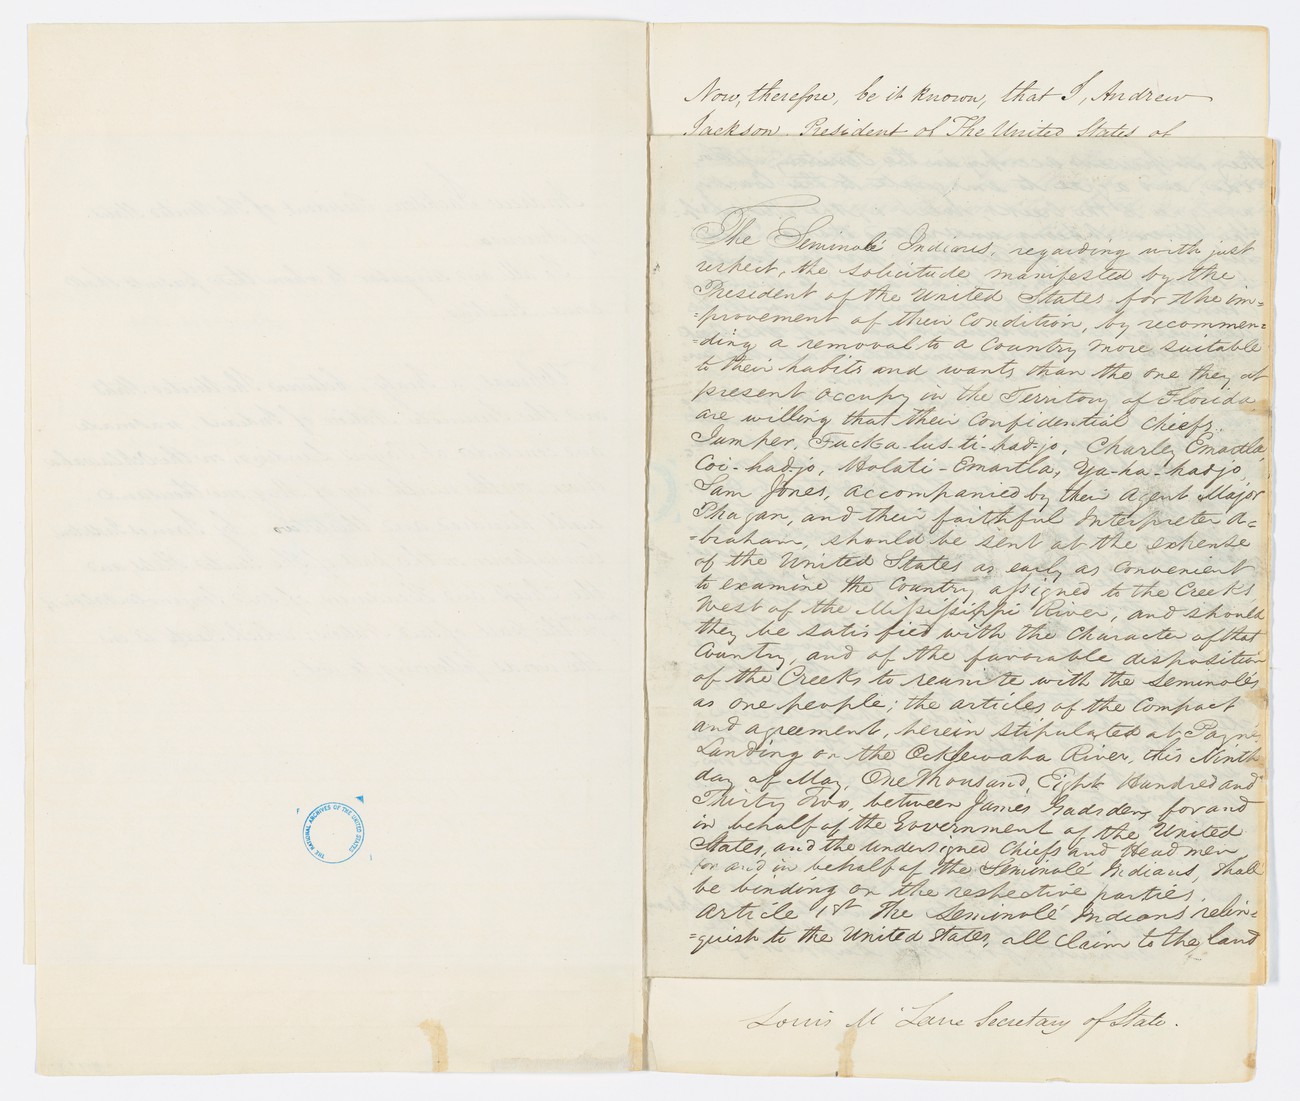 Now, therefore, be it known, that I, Andrew
Jackson, President of The United States of
The Seminole Indians, regarding with just
respect, the solicitude manifested by the
President of the United States for the im=
=provement of their condition, by recommen=
=ding a removal to a Country more suitable
to their habits and wants than the one they at
present occupy in the Territory of Florida
are willing that their Confidential Chiefs.
Jumper, Fuck-a-lus-ti-had-jo, Charley Emartla,
Coi-had-jo, Holati-Emartla, Ya-ha-hadjo,
Sam Jones, accompanied by their Agent Major
Phagan, and their faithful Interpreter A=
=braham, should be sent at the expense
of the United States as early as convenient
to examine the Country assigned to the Creeks
West of the Mississippi River, and should
they be satisfied with the character of that
Country, and of the favorable disposition
of the Creeks to reunite with the Seminoles
as one people; the articles of the Compact
and agreement, herein stipulated at Payne's
Landing on the Ocklewaha River, this Ninth
day of May, One Thousand, Eight Hundred and
Thirty Two, between James Gadsden, for and
in behalf of the Government of the United
States, and the undersigned Chiefs and Head men
for and in behalf of the Seminole Indians, shall
be binding on the respective parties.
Article 1st The Seminole Indians relin=
=quish to the United States, all claim to the land
Louis McLane Secretary of State.
THE NATIONAL ARCHIVES OF THE UNITED STATES